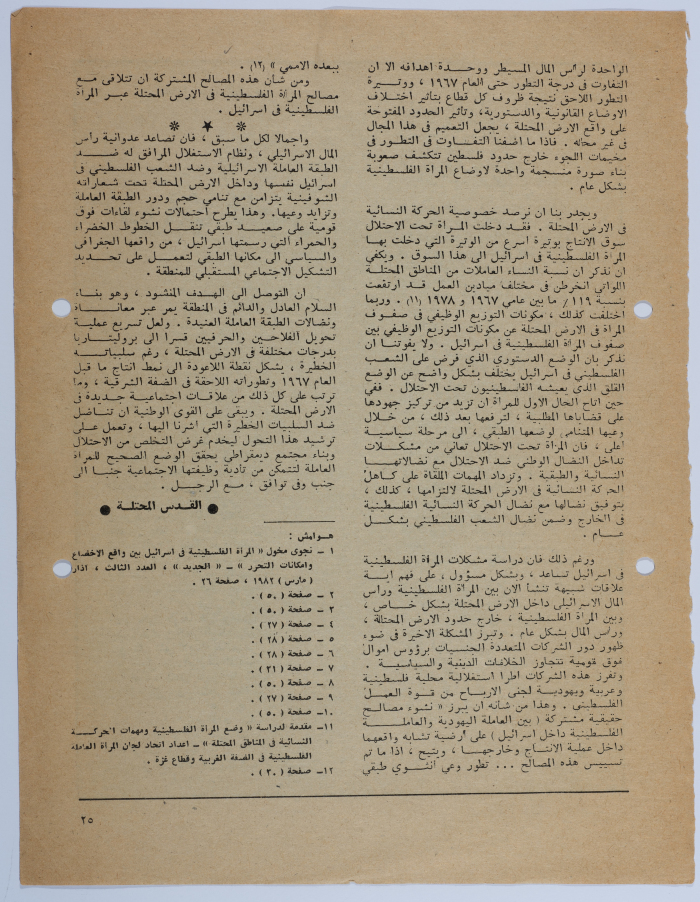 الواحدة لرأس المال المسيطر ووحدة اهدافه الا ان
التفاوت في درجة التطور حتى العام ١٩٦٧ ، ووتيرة
التطور اللاحق نتيجة ظروف كل قطاع بتأثير اختلاف
الاوضاع القانونية والدستورية، وتأثير الحدود المفتوحة
على واقع الارض المحتلة ، يجعل التعميم في هذا المجال
في غير محله . فاذا ما اضفنا التفاوت في التطور في
مخيمات اللجوء خارج حدود فلسطين تتكشف صعوبة
بناء صورة منسجمة واحدة لاوضاع المرأة الفلسطينية
بشكل عام .
ويجدر بنا ان نرصد خصوصية الحركة النسائية
في الارض المحتلة . فقد دخلت المرأة تحت الاحتلال
سوق الانتاج بوتيرة اسرع من الوتيرة التي دخلت بها
المرأة الفلسطينية في اسرائيل الى هذا السوق . ويكفي
ان نذكر ان نسبة النساء العاملات من المناطق المحتلة
اللواتي انخرطن في مختلف ميادين العمل قد ارتفعت
بنسبة ١١٩٪ ما بين عامي ١٩٦٧ و ١٩٧٨ (١١) . وربما
اختلفت كذلك ، مكونات التوزيع الوظيفي في صفوف
المرأة في الارض المحتلة عن مكونات التوزيع الوظيفي بين
صفوف المرأة الفلسطينية في اسرائيل . ولا يفوتنا ان
نذكر بان الوضع الدستوري الذي فرض على الشعب
الفلسطيني في اسرائيل يختلف بشكل واضح عن الوضع
القلق الذي يعيشه الفلسطينيون تحت الاحتلال . ففي
حين اتاح الحال الاول للمرأة ان تزيد من تركيز جهودها
على قضاياها المطلبية ، لترفعها بعد ذلك ، من خلال
وعيها المتنامي لوضعها الطبقي ، الى مرحلة سياسية
اعلى ، فان المرأة تحت الاحتلال تعاني من مشكلات
تداخل النضال الوطني ضد الاحتلال مع نضالاتها
النسائية والطبقية . وتزداد المهمات الملقاة على كاهل
الحركة النسائية في الارض المحتلة لالتزامها ، كذلك ،
بتوفيق نضالها مع نضال الحركة النسائية الفلسطينية
في الخارج وضمن نضال الشعب الفلسطيني بشكل
عام .
ورغم ذلك فان دراسة مشكلات المرأة الفلسطينية
في اسرائيل تساعد ، وبشكل مسؤول ، على فهم اية
علاقات شبيهة تنشأ الان بين المرأة الفلسطينية ورأس
المال الاسرائيلي داخل الارض المحتلة بشكل خاص ،
وبين المرأة الفلسطينية ، خارج حدود الارض المحتلة ،
ورأس المال بشكل عام . وتبرز المشكلة الاخيرة في ضوء
ظهور دور الشركات المتعددة الجنسيات برؤوس اموال
فوق قومية تتجاوز الخلافات الدينية والسياسية .
وتفرز هذه الشركات اطرا استغلالية محلية فلسطينية
وعربية ويهودية لجني الارباح من قوة العمل
الفلسطيني . وهذا من شأنه ان يبرز « نشوء مصالح
حقيقية مشتركة ( بين العاملة اليهودية والعاملة
الفلسطينية داخل اسرائيل ) على ارضية تشابه واقعهما
داخل عملية الانتاج وخارجها ، ويتيح ، اذا ما تم
تسييس هذه المصالح ... تطور وعي انثوي طبقي
ببعده الاممي » (١٢) .
ومن شأن هذه المصالح المشتركة ان تتلاقى مع
مصالح المرأة الفلسطينية في الارض المحتلة عبر المرأة
الفلسطينية في اسرائيل .
* ★ *
واجمالا لكل ما سبق ، فان تصاعد عدوانية رأس
المال الاسرائيلي ، ونظام الاستغلال المرافق له ضد
الطبقة العاملة الاسرائيلية وضد الشعب الفلسطيني في
اسرائيل نفسها وداخل الارض المحتلة تحت شعاراته
الشوفينية يتزامن مع تنامي حجم ودور الطبقة العاملة
وتزايد وعيها. وهذا يطرح احتمالات نشوء لقاءات فوق
قومية على صعيد طبقي تنقل الخطوط الخضراء
والحمراء التي رسمتها اسرائيل ، من واقعها الجغرافي
والسياسي الى مكانها الطبقي لتعمل على تحديد
التشكيل الاجتماعي المستقبلي للمنطقة .
ان التوصل الى الهدف المنشود ، وهو بناء
السلام العادل والدائم في المنطقة يمر عبر معاناة
ونضالات الطبقة العاملة العنيدة . ولعل تسريع عملية
تحويل الفلاحين والحرفيين قسرا الى بروليتاريا
بدرجات مختلفة في الارض المحتلة ، رغم سلبياته
الخطيرة ، يشكل نقطة اللاعودة الى نمط انتاج ما قبل
العام ١٩٦٧ وتطوراته اللاحقة في الضفة الشرقية ، وما
ترتب على كل ذلك من علاقات اجتماعية جديدة في
الارض المحتلة . ويبقى على القوى الوطنية ان تناضل
ضد السلبيات الخطيرة التي اشرنا اليها ، وتعمل على
ترشيد هذا التحول ليخدم غرض التخلص من الاحتلال
وبناء مجتمع ديمقراطي يحقق الوضع الصحيح للمرأة
العاملة لتتمكن من تأدية وظيفتها الاجتماعية جنبا الى
جنب وفي توافق ، مع الرجل .
● القدس المحتلة ●
هوامش :
١ – نجوى مخول « المرأة الفلسطينية في اسرائيل بين واقع الاخضاع
وامكانات التحرر » – « الجديد » ، العدد الثالث ، اذار
( مارس ) ١٩٨٢ ، صفحة ٢٦ .
٢ – صفحة ( ٥٠ ) .
٣ – صفحة ( ٥٠ ) .
٤ – صفحة ( ٢٧ ) .
٥ – صفحة ( ٢٨ ) .
٦ – صفحة ( ٢٨ ) .
٧ – صفحة ( ٣١ ) .
٨ – صفحة ( ٥٠ ) .
٩ – صفحة ( ٢٧ ) .
١٠– صفحة ( ٥٠ ) .
١١– مقدمة لدراسة « وضع المرأة الفلسطينية ومهمات الحركة
النسائية في المناطق المحتلة » – اعداد اتحاد لجان المرأة العاملة
الفلسطينية في الضفة الغربية وقطاع غزة .
١٢– صفحة ( ٣٠ ) .
٢٥